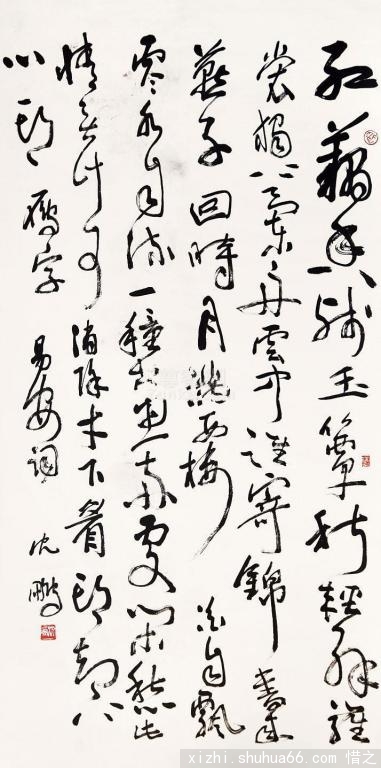 红藕香残玉簟秋轻解罗
裳独上兰舟云中谁寄锦书来
燕子回時月满西楼花自飘
零水自流一種相思两处闲愁此
情无计可消除才下眉头却上
心头 雁字 易安词 沈鹏
xizhi.shuhua66.com 惜之